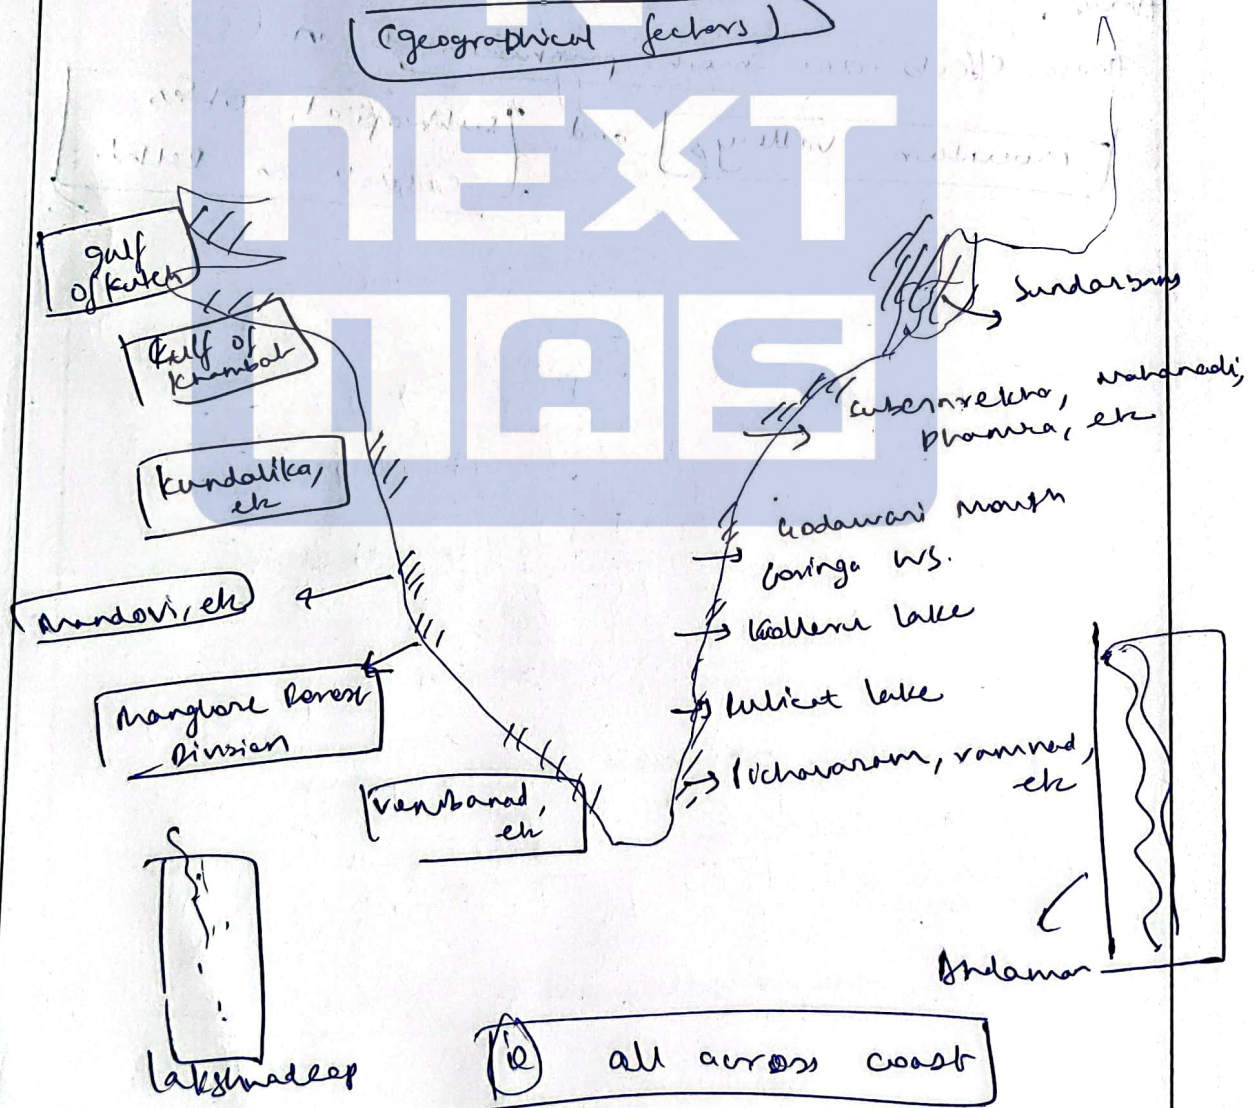 (geographical factors)
N
NEXT
IAS
gulf
of Kutch
Gulf of
Khambat
Kundalika,
etc
Mandovi, etc
Manglore Forest
Division
Vembanad,
etc
Lakshadeep
Sundarbans
Subernrekha, Mahanadi,
Dhamra, etc
Godawari Mouth
Coringa WS.
Kolleru lake
Pulicat lake
Pichavaram, ramnad,
etc
Andaman
ie all across coast